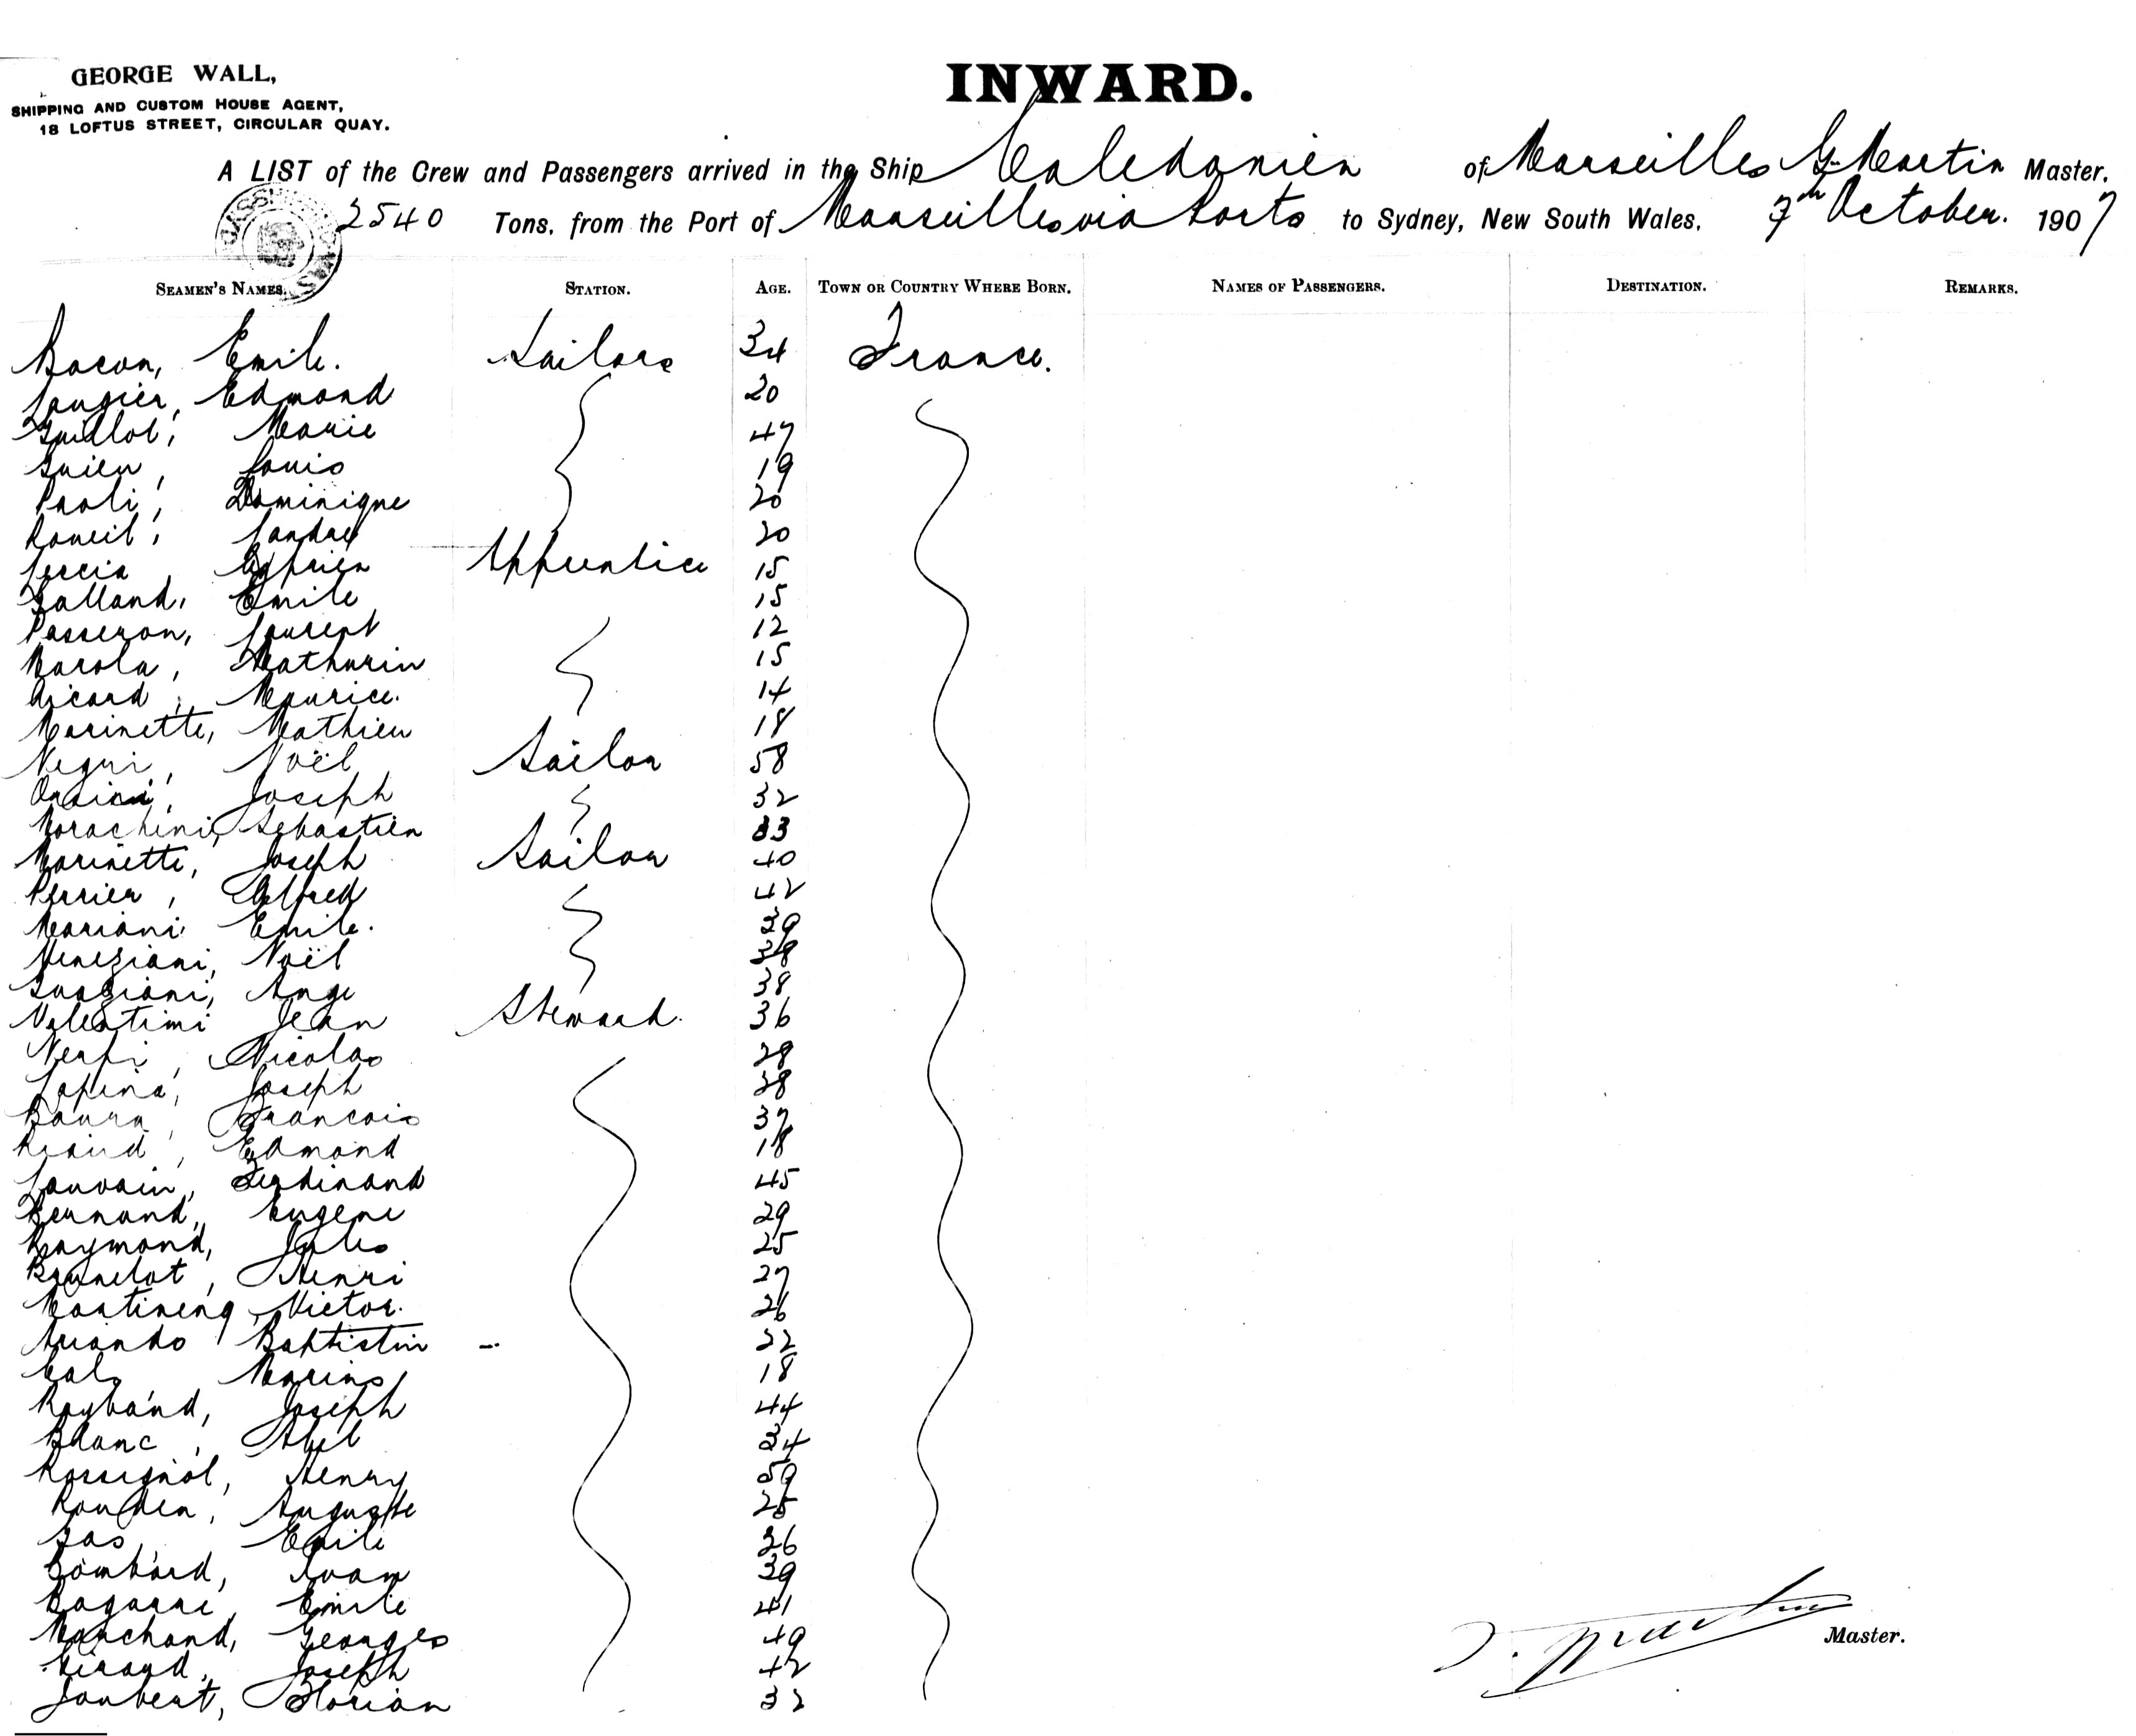 GEORGE WALL,
SHIPPING AND CUSTOM HOUSE AGENT,
18 LOFTUS STREET, CIRCULAR QUAY.
INWARD.
A LIST of the Crew and Passengers arrived in the Ship Caledonien of Marseilles G Martin Master.
2540 Tons, from the Port of Marseilles via Ports to Sydney, New South Wales, 7th October. 1907
SEAMEN'S NAMES. STATION. AGE. TOWN OR COUNTRY WHERE BORN. NAMES OF PASSENGERS. DESTINATION. REMARKS.
Bacon, Emile. Sailors 34 France.
Laugier, Edmond 20
Guillot, Marie 47
Louis 19
Paoli, Dominique 20
20
Leccia, Cyprien Apprentice 15
Galland, Emile 15
Passeron, Laurent 12
Marola, Mathurin 15
Aicard, Maurice. 14
Marinette, Mathieu 18
Negri, Noël Sailor 58
Orsini, Joseph 32
Morachini, Sebastien 33
Marinette, Joseph Sailor 40
Perrier, Alfred 42
Mariani Emile. 39
Veneziani, Noël 38
Ange 38
Valentini Jean Steward. 36
Nicolas 28
Lapina, Joseph 38
Francois 37
Edmond 18
Louvain, Ferdinand 45
Bernand, Eugene 29
Raymond, Jules 25
Brunelot, Henri 27
Martinenq, Victor. 26
Baptistin 22
Marius 18
Raybaud, Joseph 44
Blanc, Abel 34
Rossignol, Henry 59
Auguste 25
Gas, Emile 26
Lombard, 39
Bagarri, Emile 41
Marchand, Georges 49
Giraud, Joseph 42
Joubert, Florian 32
Martin Master.